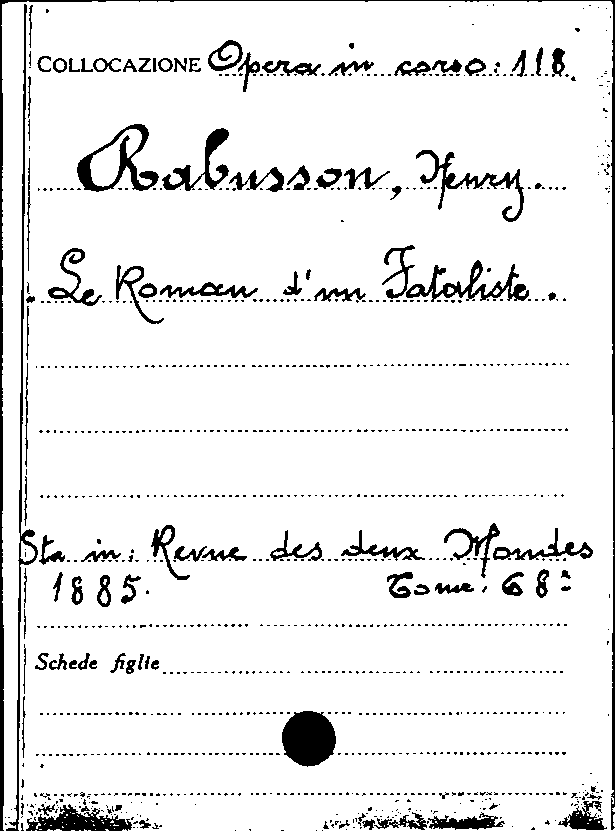 COLLOCAZIONE Opera in corso: 118.
Rabusson, Henry.
Le Roman d'un Fataliste.
Sta in: Revue des deux Mondes
1885. Tome: 68º
Schede figlie